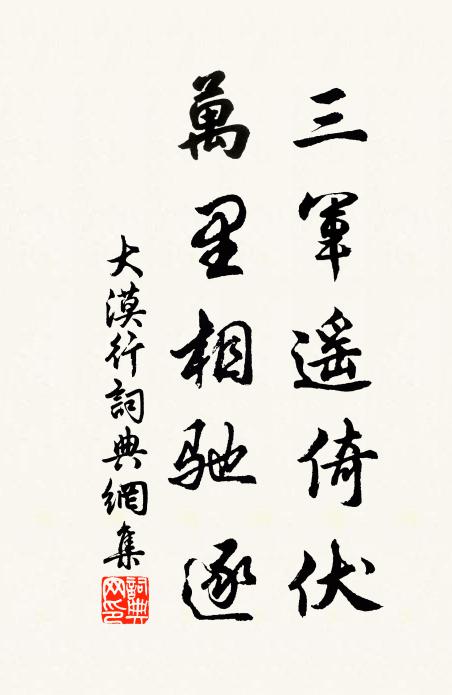 三軍遥倚伏
萬里相馳逐
大漠行詞典網集
詞典网印